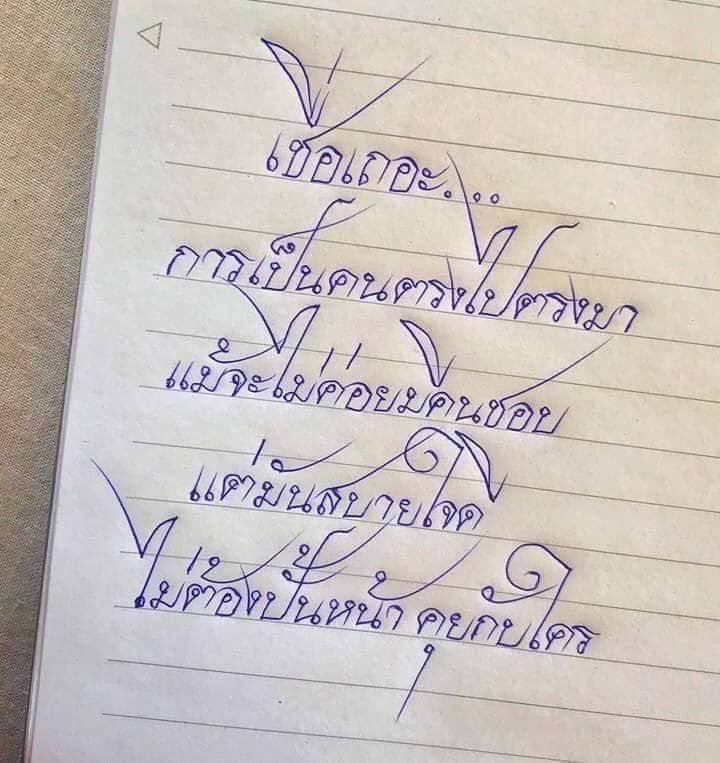 เชื่อเถอะ...
การเป็นคนตรงไปตรงมา
แม้จะไม่ค่อยมีคนชอบ
แต่มันสบายใจดี
ไม่ต้องปั้นหน้า คุยกับใคร